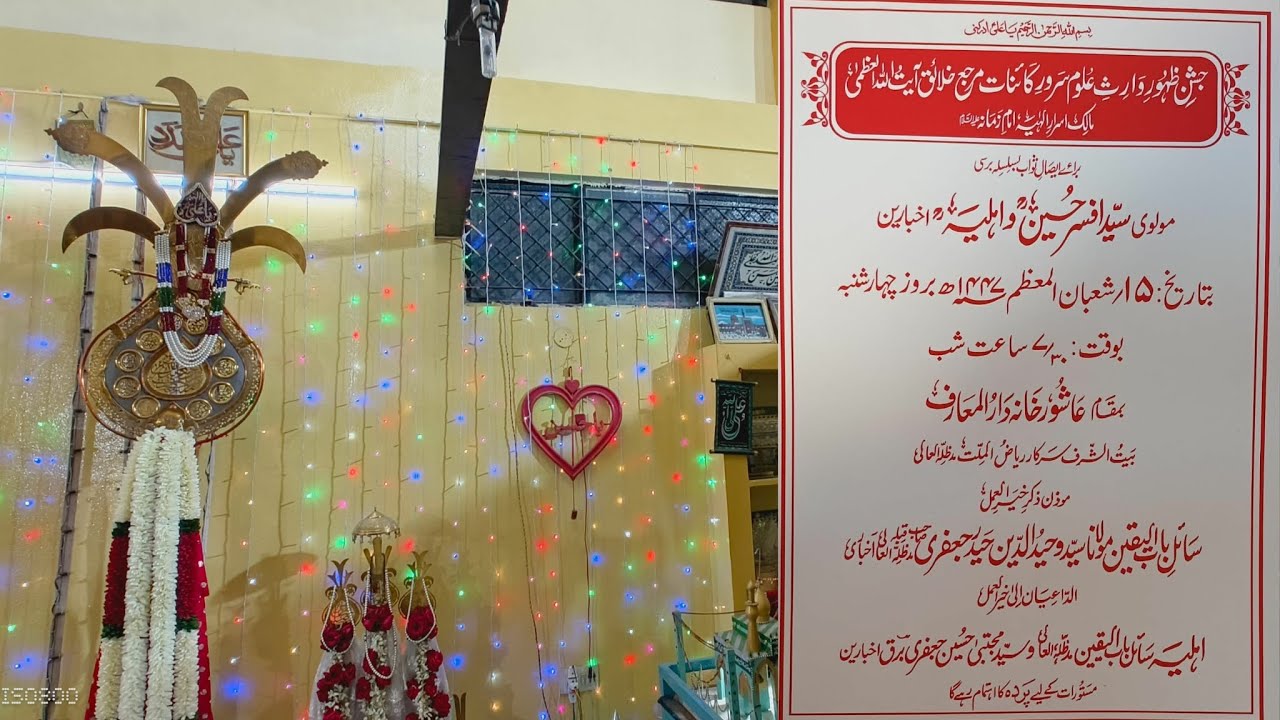 بسم اللہ الرحمٰن الرحیم یا علیؑ ادرکنی
جشنِ ظہورِ وارثِ علومِ سرورِ کائنات مرجع خلائق آیت اللہ العظمیٰ
مالک اسرار الٰہیہ امام زمانہ علیہ السلام
برائے ایصال ثواب بسلسلہ برسی
مولوی سیّد افسر حسین و اہلیہ اخبارین
بتاریخ: ۱۵؍ شعبان المعظم ۱۴۴۷ھ بروز چہارشنبہ
بوقت: ۷/۳۰ ساعت شب
بمقام عاشور خانہ دار المعارف
بیتُ الشرف سرکار ریاضُ الملّت مدظلہ العالی
موذن ذکرِ خیر العمل
سائلِ باب الیقین مولانا سیّد وحید الدین حیدر جعفری صاحب قبلہ مدظلہ العالی اخباری
الدّاعیان الیٰ خیر العمل
اہلیہ سائلِ باب الیقین مدظلہ العالی و سیّد مجتبیٰ حسین جعفری برقؔ اخبارین
مستورات کے لیے پردہ کا اہتمام رہے گا
ISO800